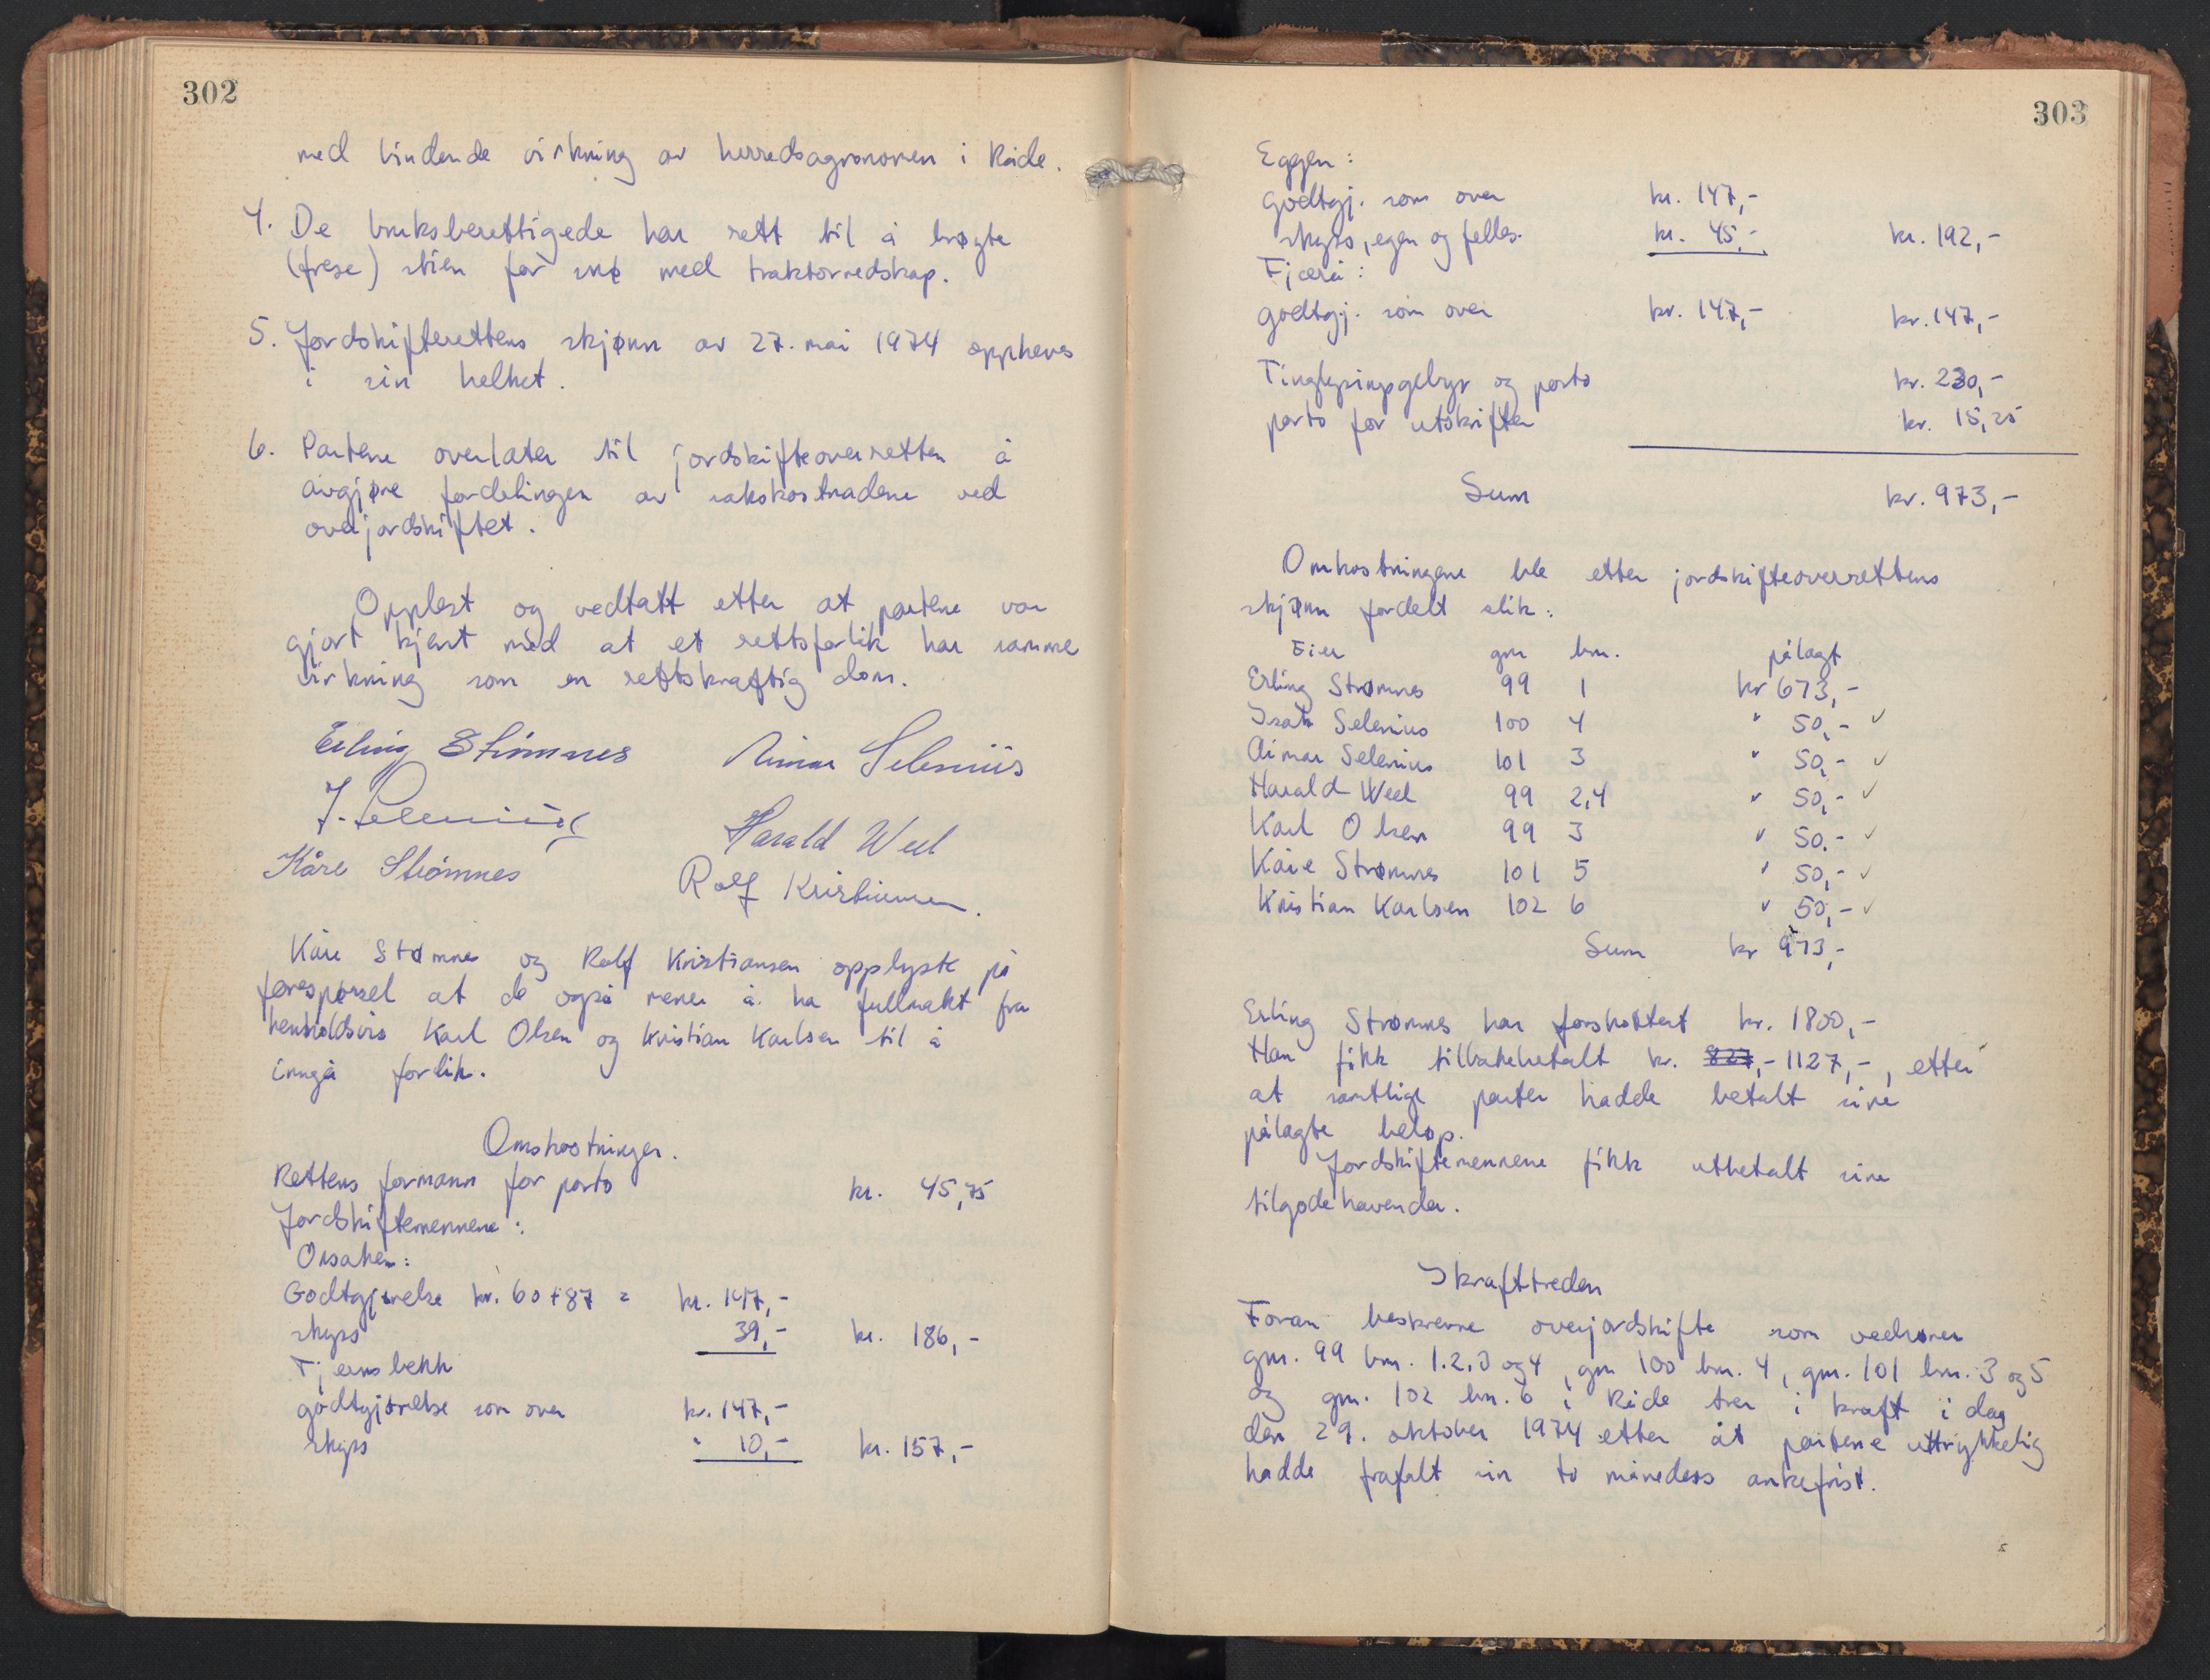 302
med bindende virkning av herredsagronomen i Råde.
4. De bruksberettigede har rett til å brøyte
(frese) stien for snø med traktorredskap.
5. Jordskifterettens skjønn av 27. mai 1974 oppheves
i sin helhet.
6. Partene overlater til jordskifteoverretten å
avgjøre fordelingen av sakskostnadene ved
overjordskiftet.
Opplest og vedtatt etter at partene var
gjort kjent med at et rettsforlik har samme
virkning som en rettskraftig dom.
Erling Strømnes
Aimar Selenius
J. Selenius
Harald Weel
Kåre Strømnes
Rolf Kristiansen.
Kåre Stømnes og Rolf Kristiansen opplyste på
forespørsel at de også mener å ha fullmakt fra
henholdsvis Karl Olsen og Kristian Karlsen til å
inngå forlik.
Omkostninger.
Rettens formann for porto kr. 45,75
Jordskiftemennene:
Orsaken:
Godtgjørelse kr. 60+87 = kr. 147,-
skyss 39,- kr. 186,-
Tjernsbekk
godtgjørelse som over kr. 147,-
skyss " 10,- kr. 157,-
303
Eggen:
godtgj. som over kr. 147,-
skyss, egen og felles. kr. 45,- kr. 192,-
Fjærå:
godtgj. som over kr. 147,- kr. 147,-
Tinglysingsgebyr og porto kr. 230,-
porto for utskrifter kr. 15,25
Sum kr. 973,-
Omkostningene ble etter jordskifteoverrettens
skjønn fordelt slik:
Eier gnr bnr. pålagt
Erling Strømnes 99 1 kr 673,-
Isak Selenius 100 4 " 50,- ✓
Aimar Selenius 101 3 " 50,- ✓
Harald Weel 99 2,4 " 50,- ✓
Karl Olsen 99 3 " 50.- ✓
Kåre Strømnes 101 5 " 50,- ✓
Kristian Karlsen 102 6 " 50,- ✓
Sum kr 973,-
Erling Strømnes har forskottert kr. 1800,-
Han fikk tilbakebetalt kr. 827,- 1127,-, etter
at samtlige parter hadde betalt sine
pålagte beløp.
Jordskiftemennene fikk utbetalt sine
tilgodehavender.
Ikrafttreden
Foran beskrevne overjordskifte som vedrører
gnr. 99 bnr. 1.2.3 og 4, gnr 100 bnr. 4, gnr. 101 bnr. 3 og 5
og gnr. 102 bnr. 6 i Råde trer i kraft i dag
den 29. oktober 1974 etter at partene uttrykkelig
hadde frafalt sin to måneders ankefrist.